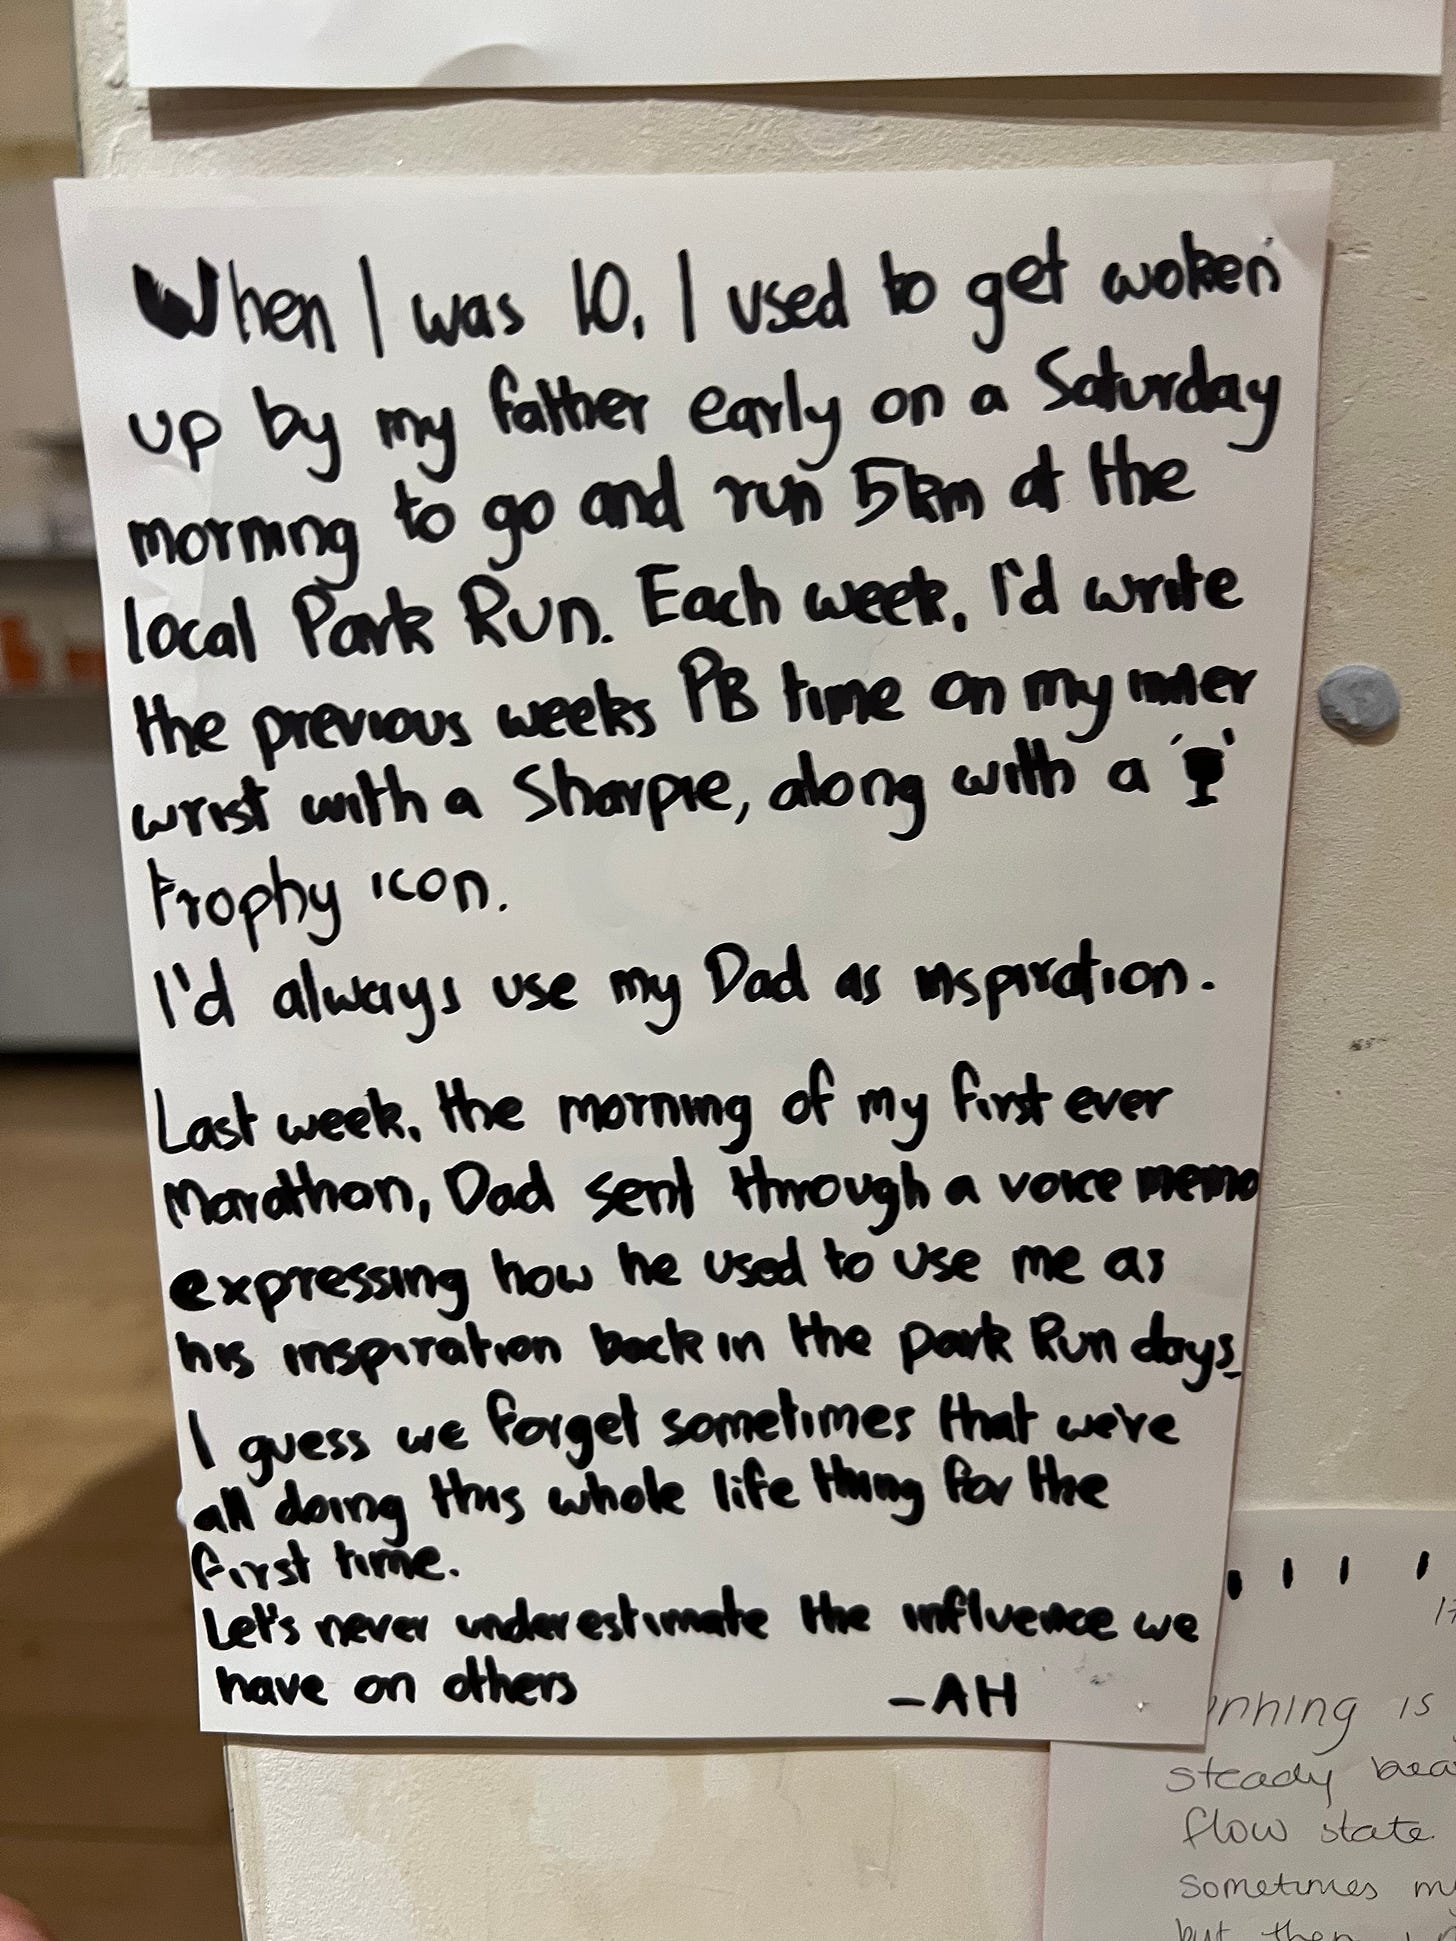 When I was 10, I used to get woken
up by my father early on a Saturday
morning to go and run 5km at the
local Park Run. Each week, I'd write
the previous weeks PB time on my inner
wrist with a Sharpie, along with a
trophy icon.
I'd always use my Dad as inspiration.
Last week, the morning of my first ever
Marathon, Dad sent through a voice memo
expressing how he used to use me as
his inspiration back in the park Run days.
I guess we forget sometimes that we're
all doing this whole life thing for the
first time.
Let's never underestimate the influence we
have on others
-AH
is
steady
flow state.
sometimes
but then